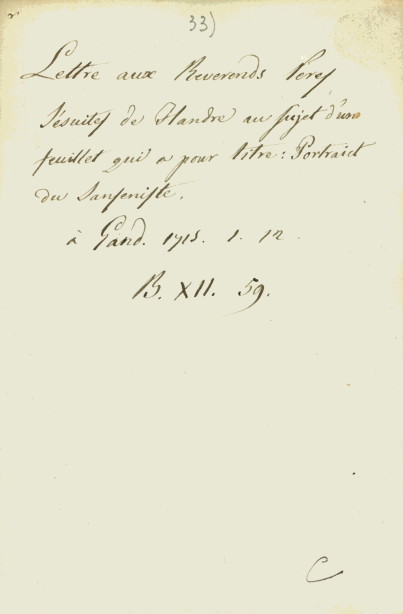 33)
Lettre aux Reverends Peres
Jésuites de Flandre au sujet d'un
feuillet qui a pour titre: Portraict
du Janseniste.
à Gand. 1715. 1. 12.
B. XII. 59.
C